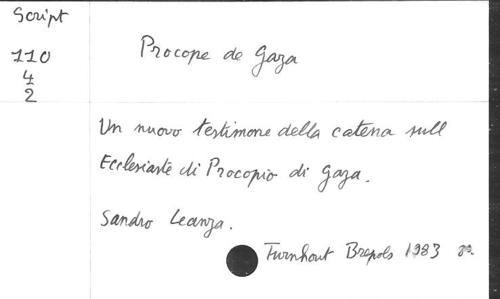 Script
110
4
2
Procope de Gaza
Un nuovo testimone della catena sull
Ecclesiaste di Procopio di Gaza.
Sandro Leanza.
Turnhout Brepols 1983